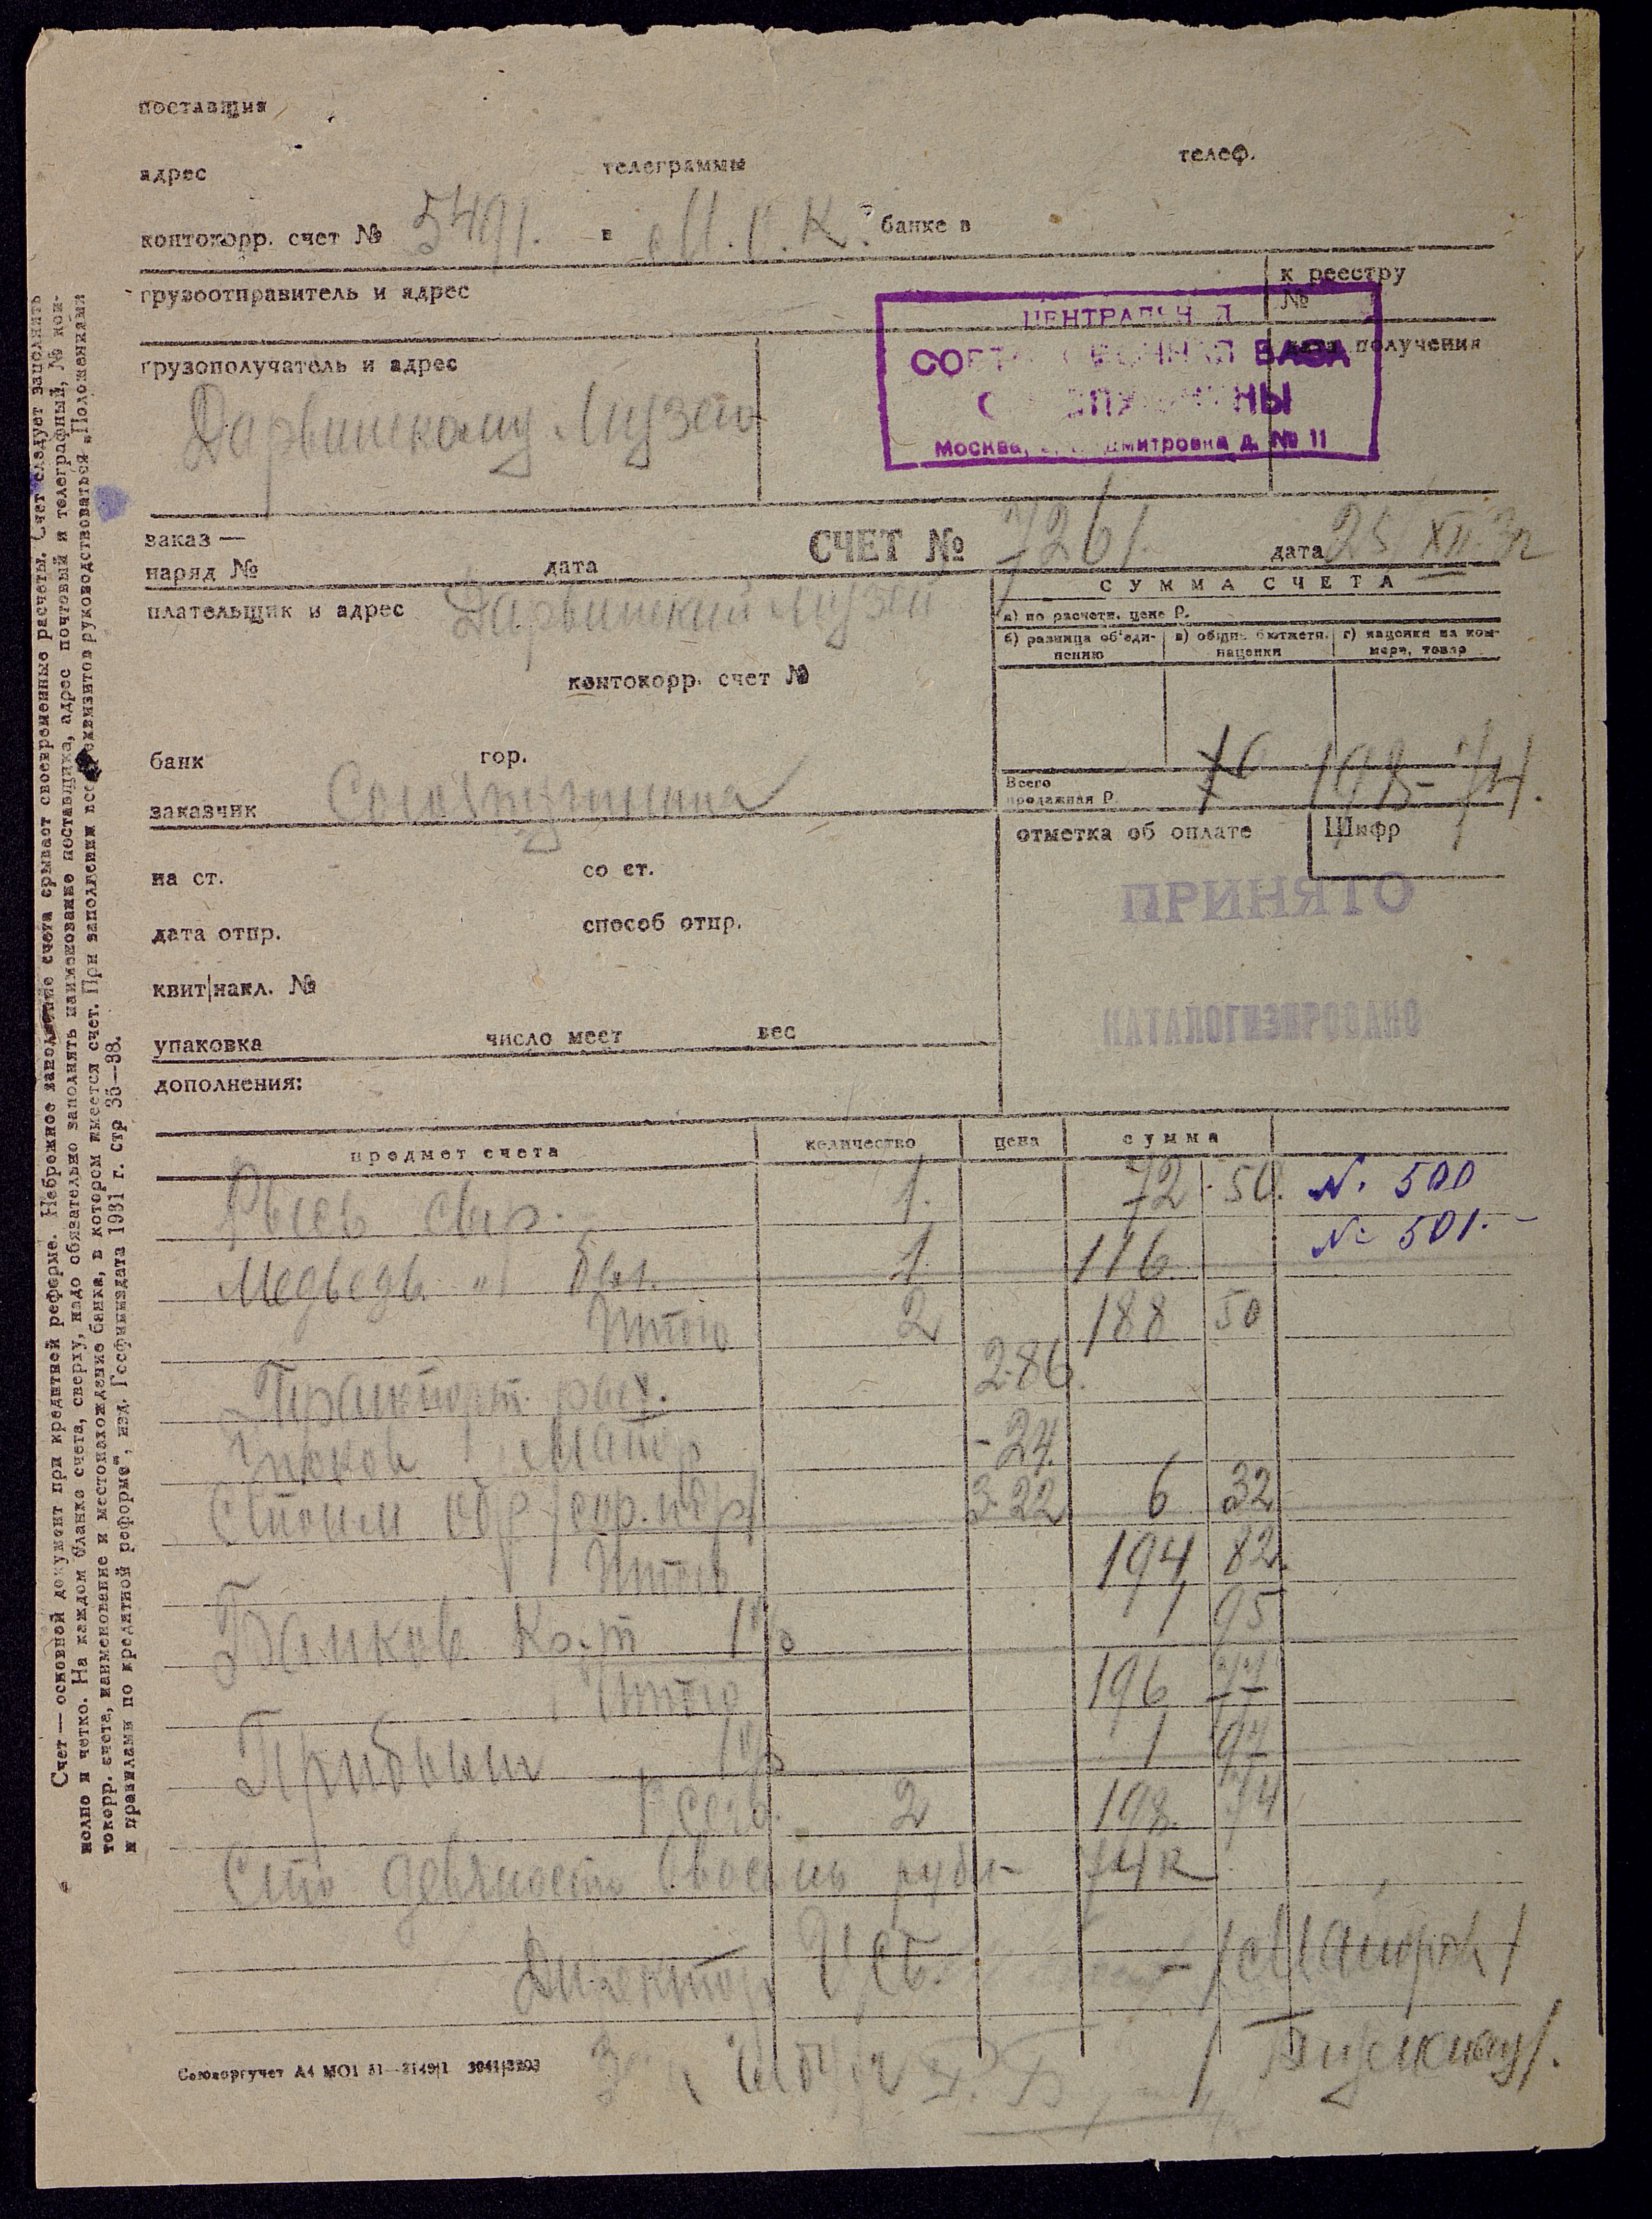 поставщик
адрес телеграммы телеф.
контокорр. счет № 5491. в М.Г.К. банке в
грузоотправитель и адрес
к реестру
№
грузополучатель и адрес
дата получения
Дарвинскому Музею
ЦЕНТРАЛЬН
БАЗА
Москва, Дмитровка д. № 11
заказ —
наряд № дата
СЧЕТ № 7261. дата 25 XII 32
плательщик и адрес Дарвинский Музей
СУММА СЧЕТА
а) по расчетн. цене Р.
б) разница об'еди-
нению
в) общие бюджетн.
наценки
г) наценки на ком-
мерч. товар
контокорр. счет №
банк гор.
заказчик Союзпушнина
Всего
продажная Р. 198-74.
отметка об оплате
Шифр
на ст. со ст.
ПРИНЯТО
дата отпр. способ отпр.
квит|накл. №
КАТАЛОГИЗИРОВАНО
упаковка число мест вес
дополнения:
предмет счета количество цена сумма
Рысь 1. 72.50. N. 500
Медведь бел. 1 116 N. 501.
Итого 2 188 50
Транспорт. рас. 2.86.
-24.
3.22 6 32
Итого 194 82.
Банков. 1% 1 95
Итого 196 77
Прибыли 1% 1 97
Всего. 2 198. 74
Сто девяносто восемь руб 74 к
Директор
Союзоргучет А4 МО1 31—2149|1 3041|3203
Счет — основной документ при кредитной реформе. Небрежное заполнение счета срывает своевременные расчеты. Счет следует заполнить
полно и четко. На каждом бланке счета, сверху, надо обязательно заполнять наименование поставщика, адрес почтовый и телеграфный, № кон-
токорр. счета, наименование и местонахождение банка, в котором имеется счет. При заполнении всех реквизитов руководствоваться „Положениями
и правилами по кредитной реформе“, изд. Госфиниздата 1931 г. стр 35—38.